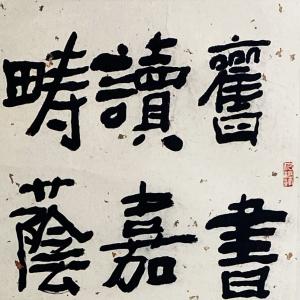 舊書
讀嘉
畴蔭